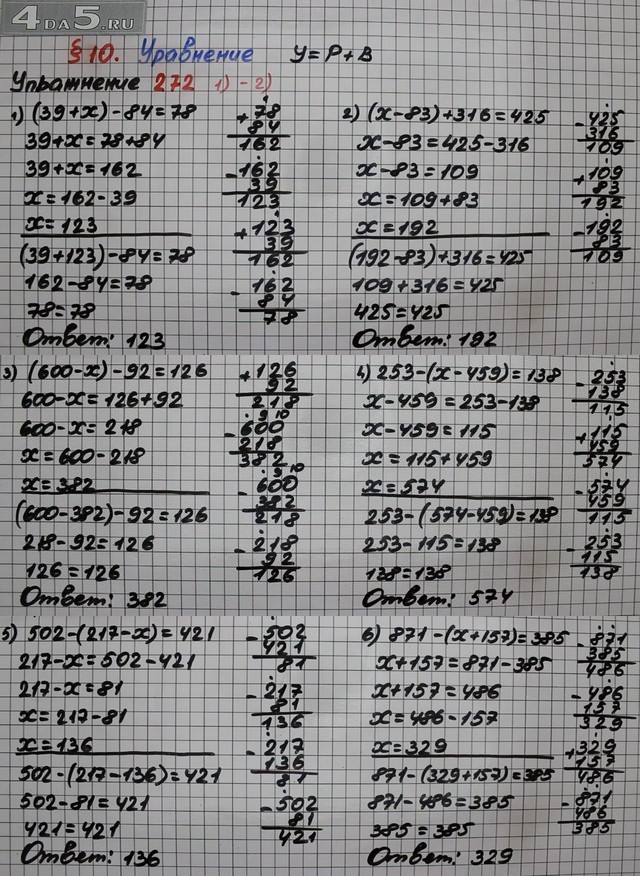 4DA5.RU
§10. Уравнение У=Р+В
Упражнение 272 1) - 2)
1) (39+x)-84=78
39+x=78+84
39+x=162
x=162-39
x=123
(39+123)-84=78
162-84=78
78=78
Ответ: 123
+78
84
162
-162
39
123
+123
39
162
-162
84
78
2) (x-83)+316=425
x-83=425-316
x-83=109
x=109+83
x=192
(192-83)+316=425
109+316=425
425=425
Ответ: 192
-425
316
109
+109
83
192
-192
83
109
3) (600-x)-92=126
600-x=126+92
600-x=218
x=600-218
x=382
(600-382)-92=126
218-92=126
126=126
Ответ: 382
+126
92
218
9 10
-600
218
382
9 10
-600
382
218
-218
92
126
4) 253-(x-459)=138
x-459=253-138
x-459=115
x=115+459
x=574
253-(574-459)=138
253-115=138
138=138
Ответ: 574
-253
138
115
+115
459
574
-574
459
115
-253
115
138
5) 502-(217-x)=421
217-x=502-421
217-x=81
x=217-81
x=136
502-(217-136)=421
502-81=421
421=421
Ответ: 136
-502
421
81
-217
81
136
-217
136
81
-502
81
421
6) 871-(x+157)=385
x+157=871-385
x+157=486
x=486-157
x=329
871-(329+157)=385
871-486=385
385=385
Ответ: 329
-871
385
486
-486
157
329
+329
157
486
-871
486
385